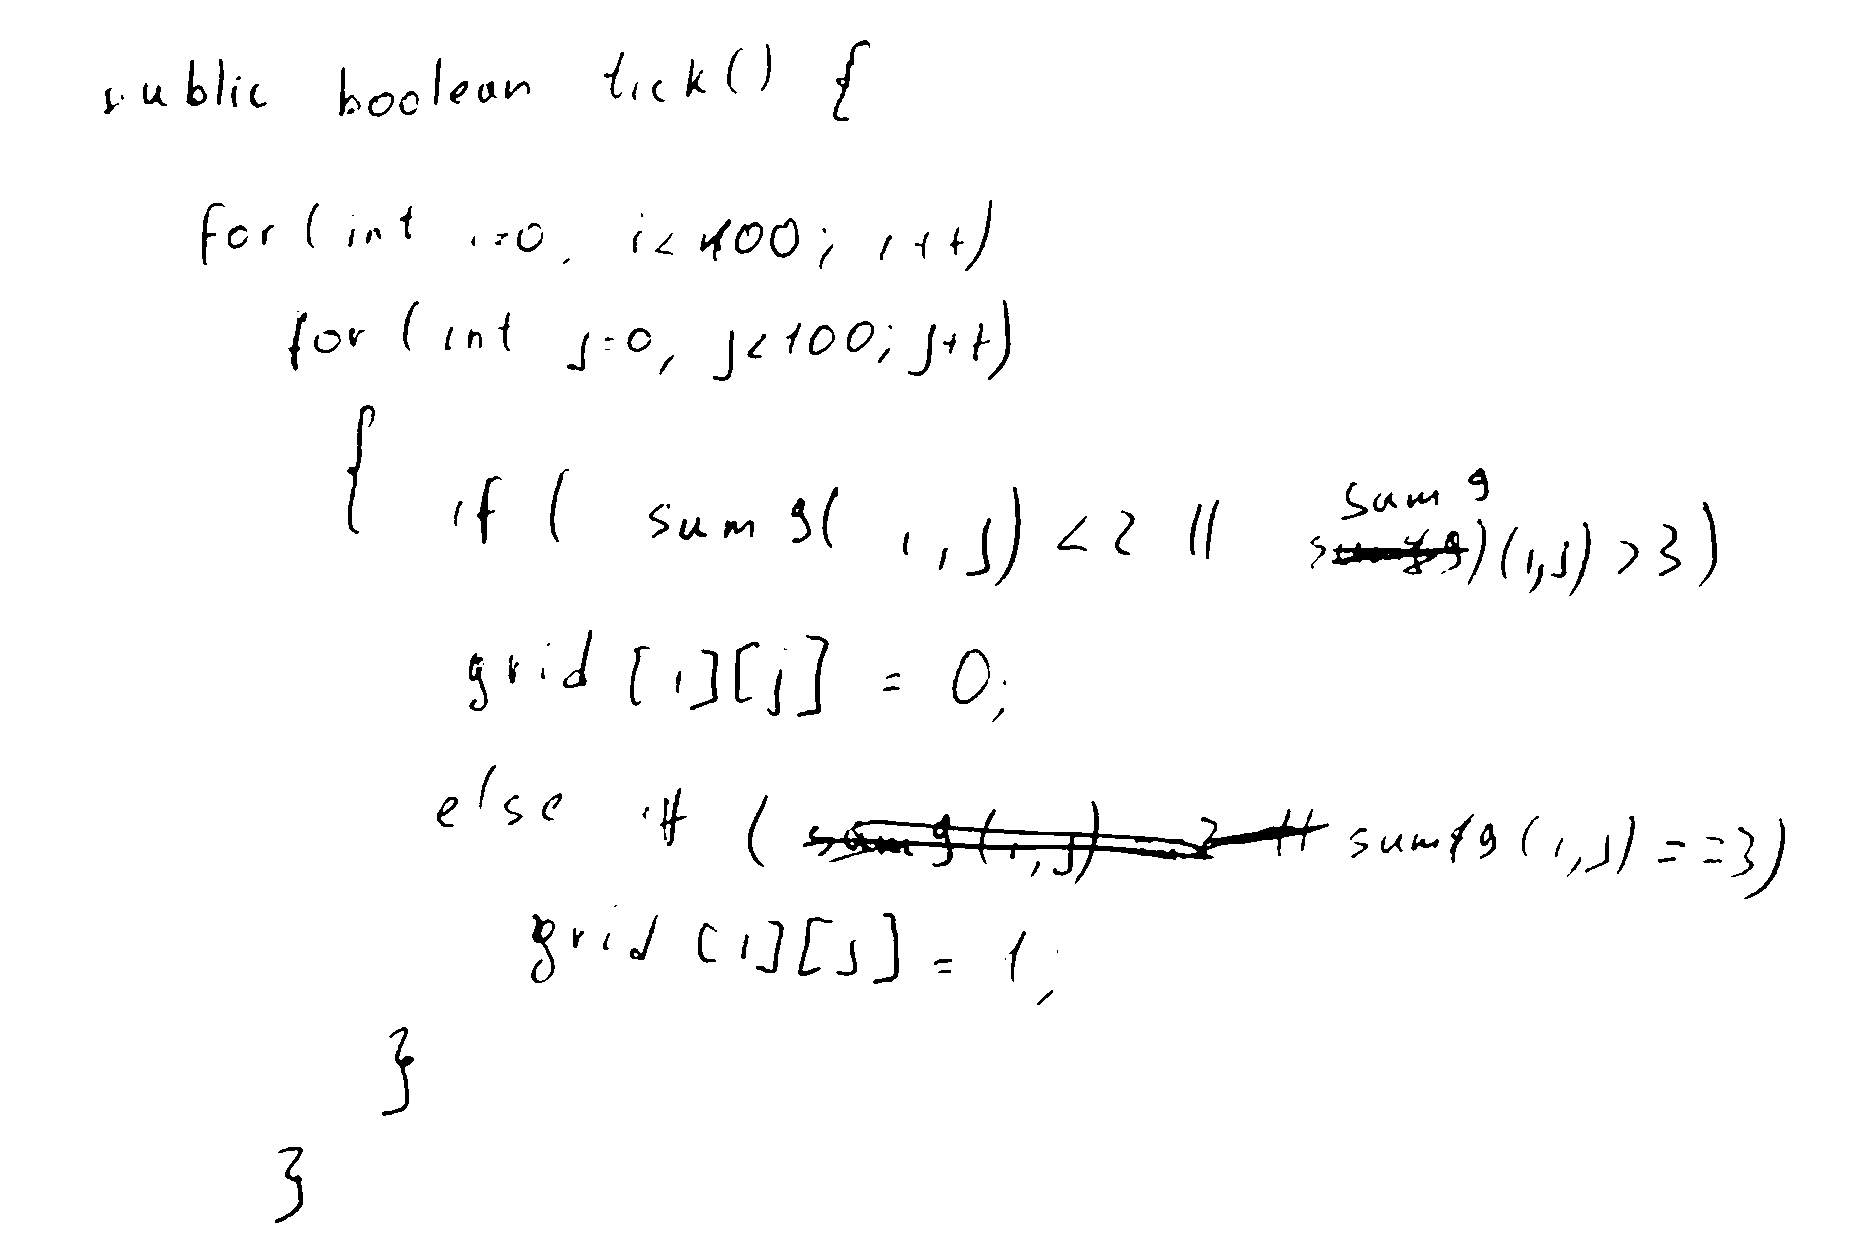 public boolean tick() {
for (int i=0, i<100; i++)
for (int j=0, j<100; j++)
{ if ( sum9( i,j) <2 || sum9 (i,j) >3)
grid [i][j] = 0;
else if ( sum9 (i,j) ==3)
grid [i][j] = 1;
}
}